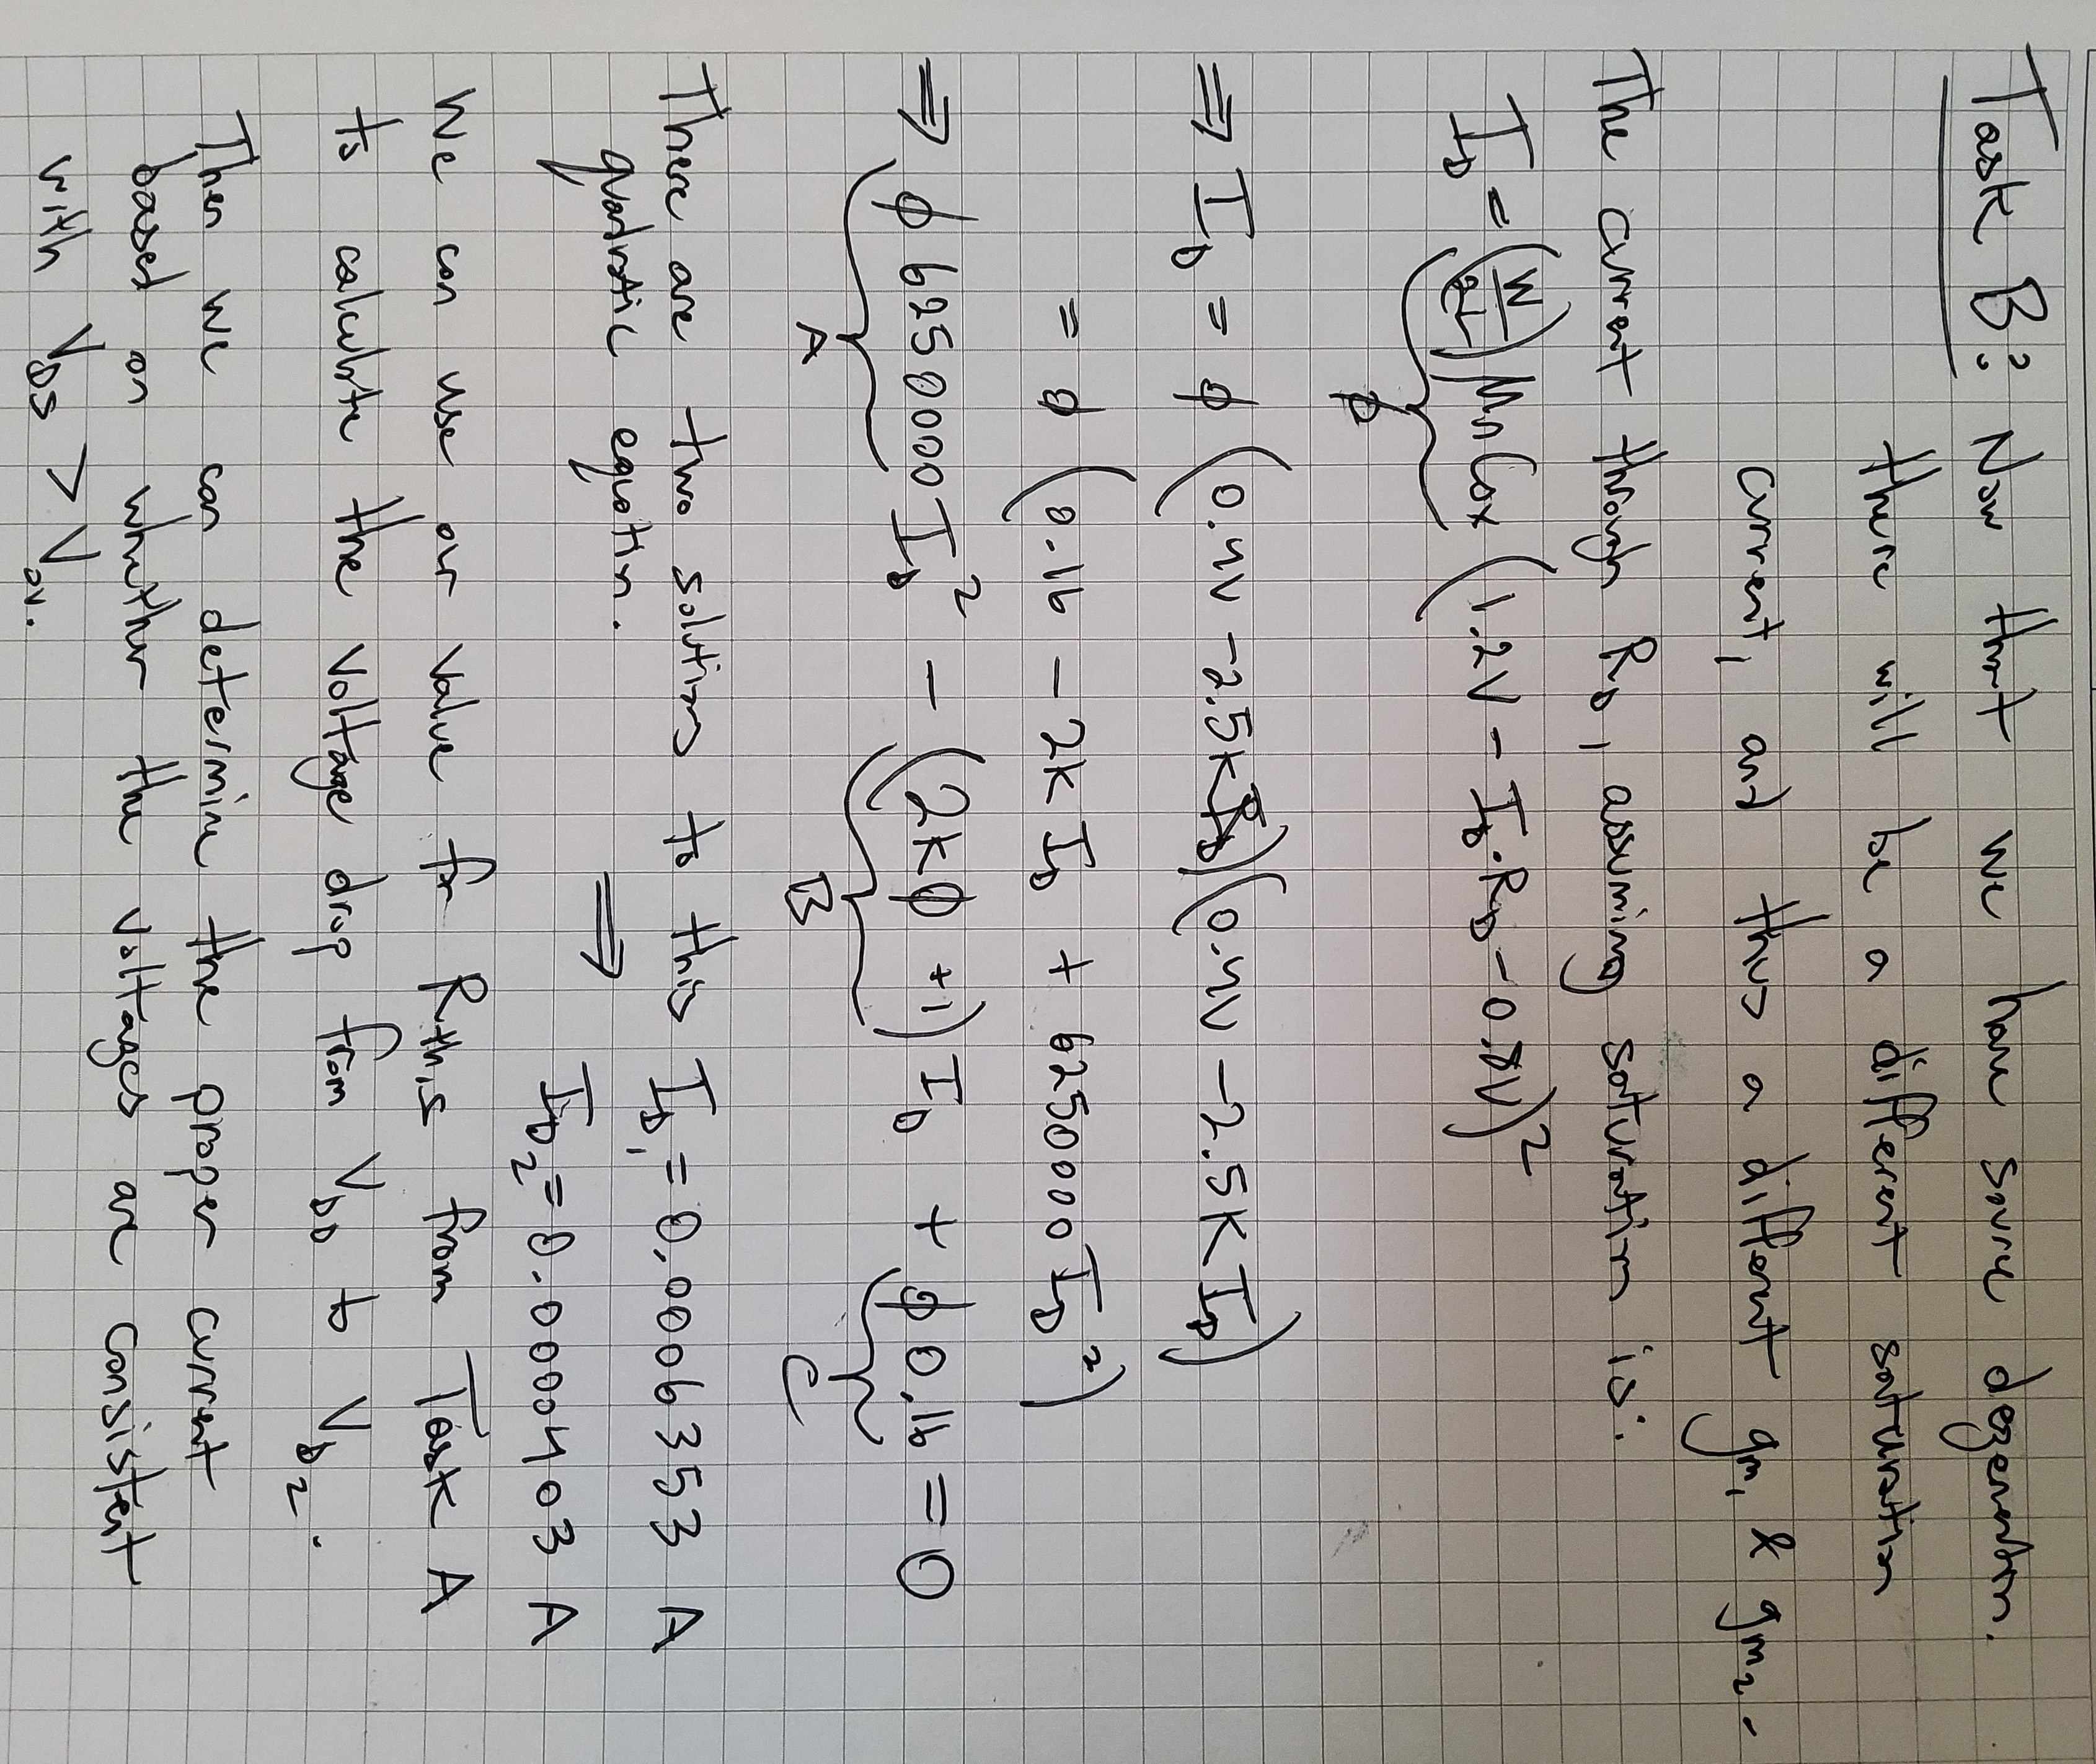 Task B: Now that we have source degeneration.
there will be a different saturation
current, and thus a different gm₁ & gm₂.
The current through R_D, assuming saturation is:
I_D = (W/2L) μn Cox (1.2V - I_D·R_D - 0.8V)²
ϕ
⇒ I_D = ϕ (0.4V - 2.5K I_D)(0.4V - 2.5K I_D)
= ϕ (0.16 - 2K I_D + 6250000 I_D²)
⇒ ϕ 6250000 I_D² - (2Kϕ + 1) I_D + ϕ 0.16 = 0
A B C
There are two solutions to this I_D₁ = 0.0006353 A
quadratic equation. ⇒
I_D₂ = 0.0000403 A
We can use our value for R_th,s from Task A
to calculate the voltage drop from V_DD to V_D₂.
Then we can determine the proper current
based on whether the voltages are consistent
with V_DS > V_ov.